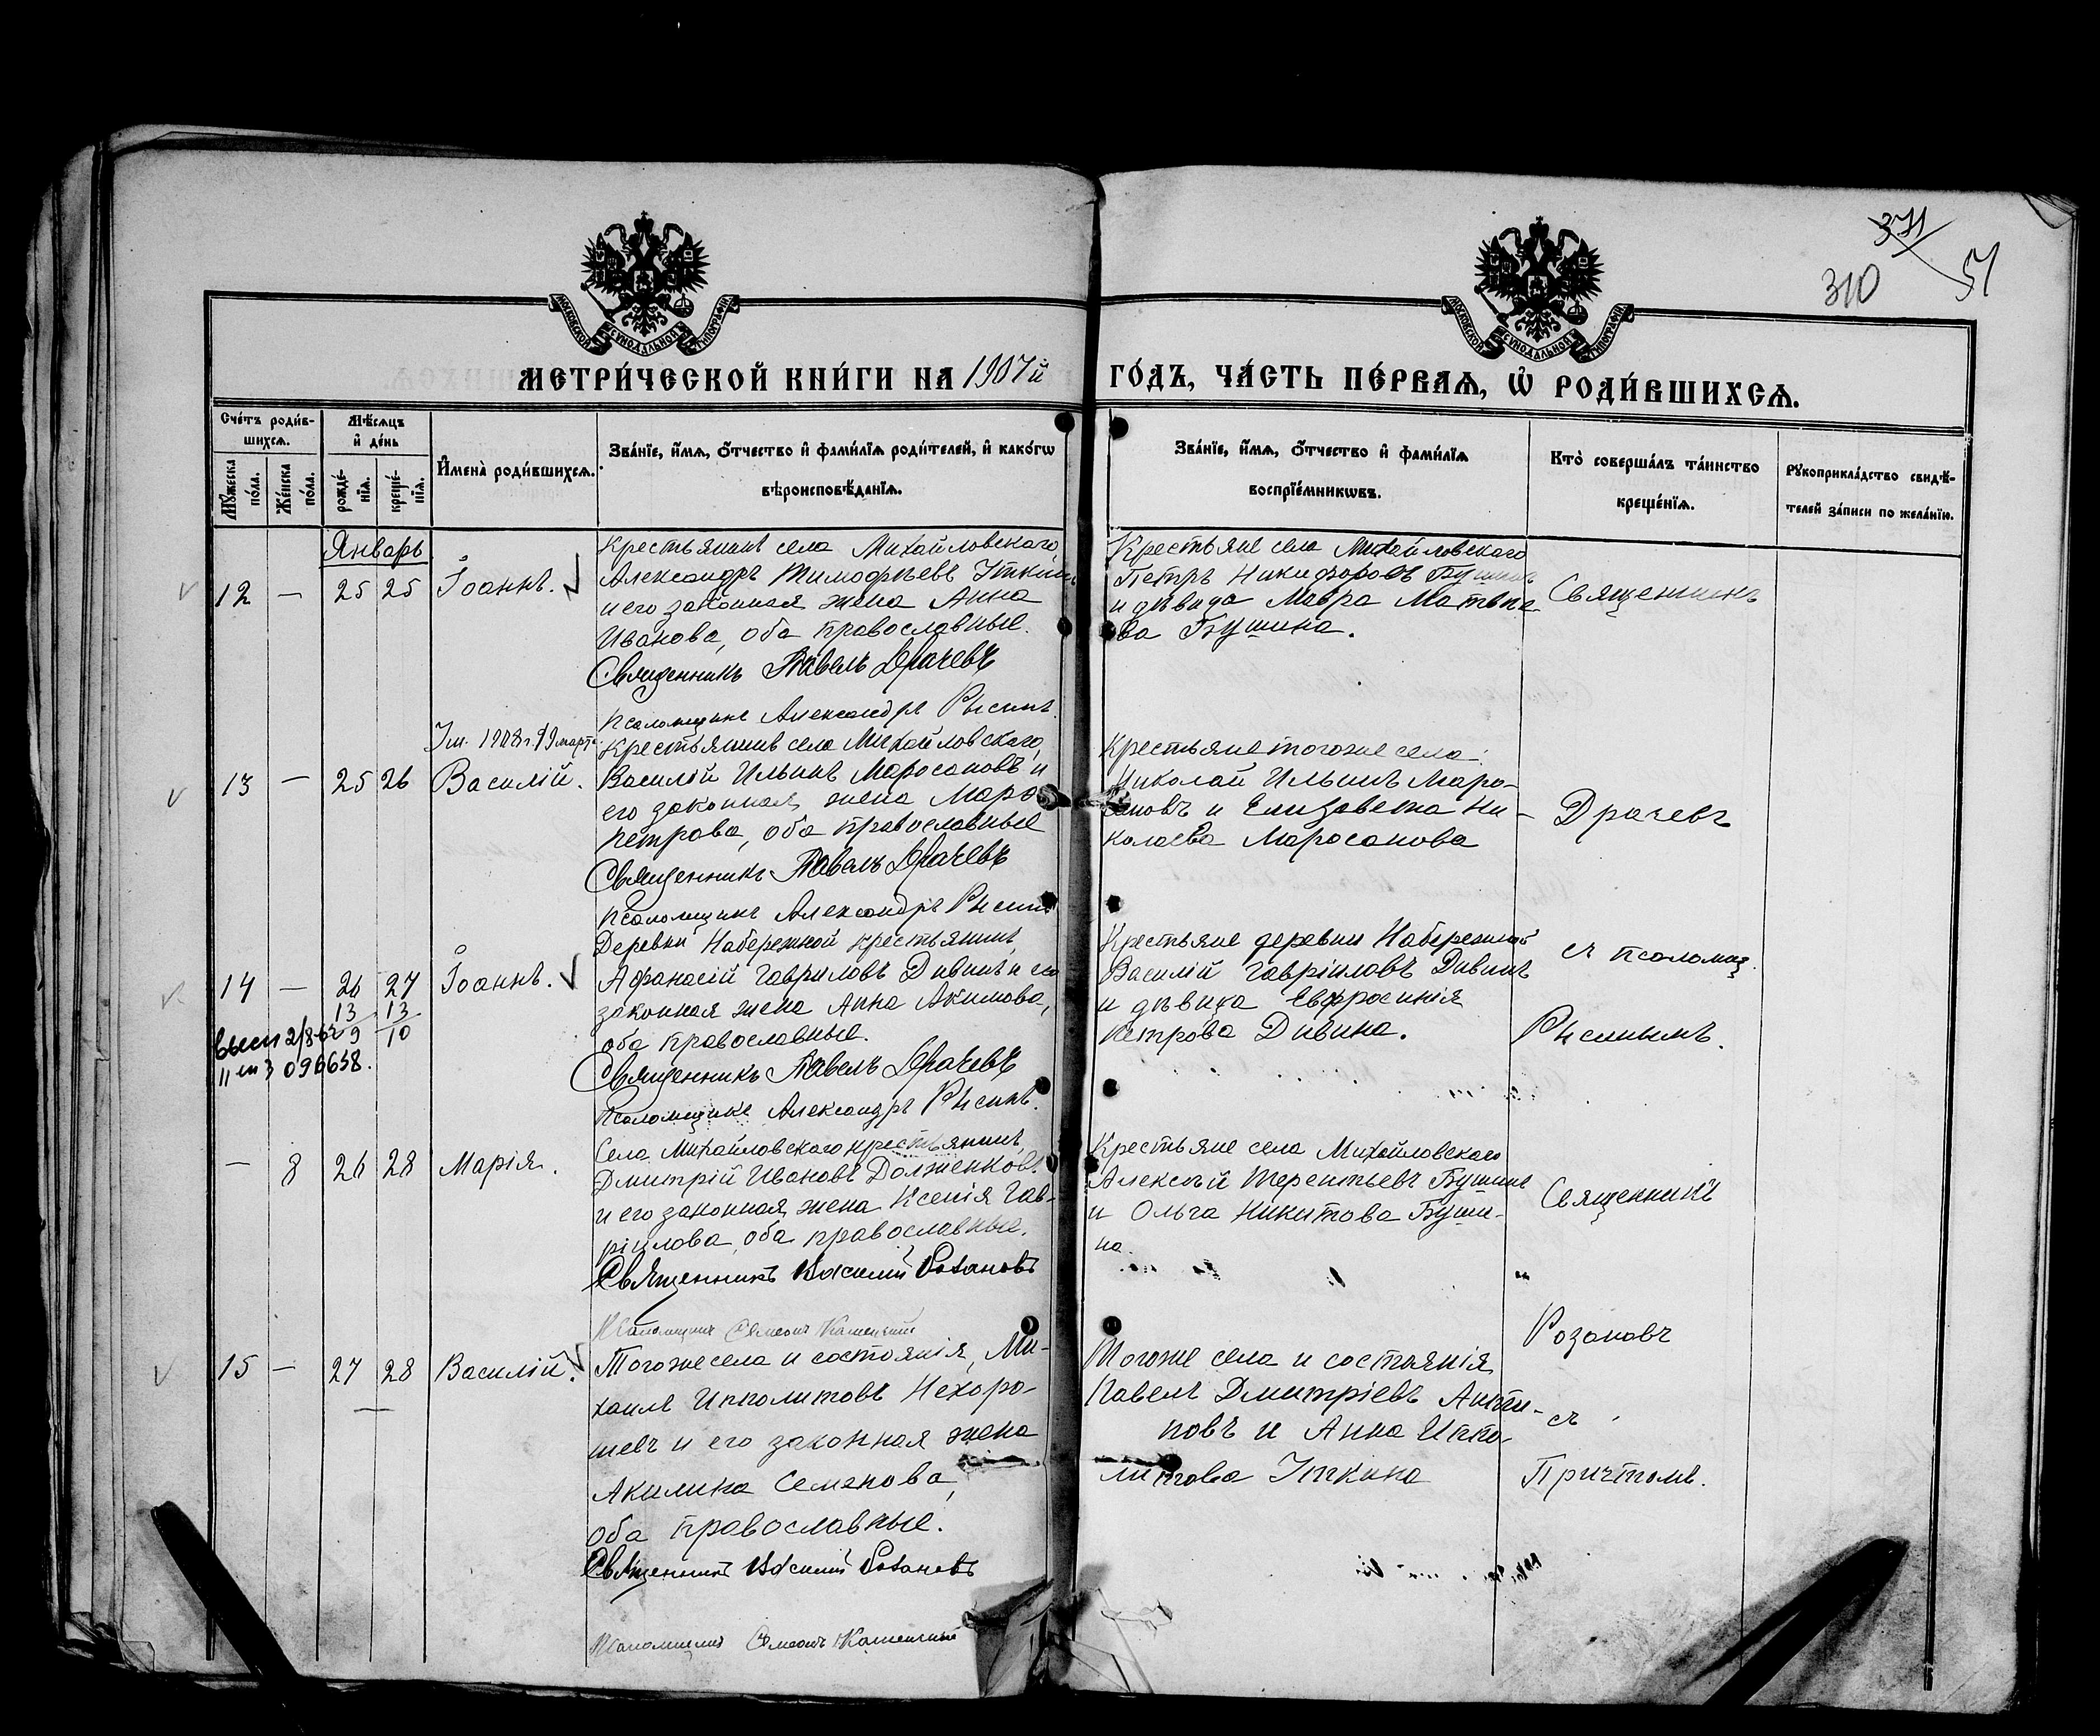 371
310
51
МОСКОВСКОЙ СѴНОДАЛЬНОЙ ТИПОГРАФІИ
МОСКОВСКОЙ СѴНОДАЛЬНОЙ ТИПОГРАФІИ
МЕТРИ́ЧЕСКОЙ КНИ́ГИ НА 1907й ГО́ДЪ, ЧА́СТЬ ПЕ́РВАѦ, Ѽ РОДИ́ВШИХСѦ.
Сче́тъ роди́в-
шихсѧ.
Мꙋжеска
по́ла.
Же́нска
по́ла.
Мѣ́сѧцъ
и҆ де́нь
рожде́-
нїѧ.
креще́-
нїѧ.
И҆мена̀ роди́вшихсѧ.
Зва́нїе, и҆́мѧ, ѻ҆́тчество и҆ фами́лїѧ роди́телей, и҆ како́гѡ
вѣроисповѣ́данїѧ.
Зва́нїе, и҆́мѧ, ѻ҆́тчество и҆ фами́лїѧ
воспрїе́мникѡвъ.
Кто̀ соверша́лъ та́инство
креще́нїѧ.
Рꙋкоприкла́дство свидѣ́-
телей за́писи по жела́нїю.
Январь
12 — 25 25 Іоаннъ.
Крестьянинъ села Михайловскаго,
Александръ Тимофѣевъ Уткинъ
и его законная жена Анна
Иванова, оба православные.
Священникъ Павелъ Драчевъ
Псаломщикъ Александръ Рысинъ
Крестьяне села Михайловскаго
Петръ Никифоровъ Бушинъ
и дѣвица Мавра Матвѣе-
ва Бушина.
Священникъ
1908 г. 19 марта
13 — 25 26 Василій.
Крестьянинъ села Михайловскаго,
Василій Ильинъ Маросановъ и
его законная жена
Петрова, оба православные
Священникъ Павелъ Драчевъ
Псаломщикъ Александръ Рысинъ
Крестьяне тогоже села:
Николай Ильинъ Маро-
сановъ и Елизавета Ни-
колаева Маросанова
Драчевъ
14 — 26 27 Іоаннъ.
13 13
9 10
II 096658.
Деревни Набережной крестьянинъ,
Афанасій Гавриловъ Дивинъ и его
законная жена Анна Акимова,
оба православные.
Священникъ Павелъ Драчевъ
Псаломщикъ Александръ Рысинъ.
Крестьяне деревни Набережной
Василій Гавріиловъ Дивинъ
и дѣвица Евфросинія
Петрова Дивина.
съ псаломщ.
Рысинымъ.
— 8 26 28 Марія.
Села Михайловскаго крестьянинъ,
Дмитрій Ивановъ Долженковъ
и его законная жена Ксенія Гав-
ріилова, оба православные.
Священникъ Василій Розановъ
Псаломщикъ Симеонъ Каменскій
Крестьяне села Михайловскаго
Алексѣй Терентьевъ Бушинъ
и Ольга Никитова Буши-
на.
Священникъ
Розановъ
15 — 27 28 Василій.
Тогоже села и состоянія, Ми-
хаилъ Ипполитовъ Нехоро-
шевъ и его законная жена
Акилина Семенова,
оба православные.
Священникъ Василій Розановъ
Псаломщикъ Симеонъ Каменскій
Тогоже села и состоянія
Павелъ Дмитріевъ Анти-
повъ и Анна Иппо-
литова Уткина
съ
Причтомъ.